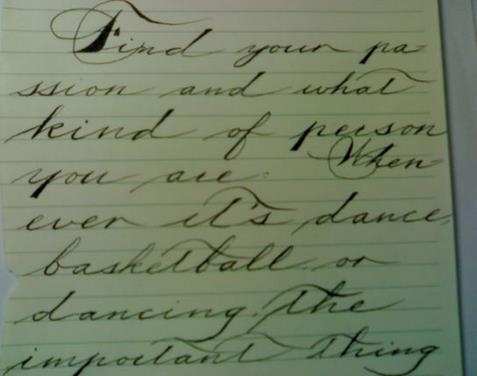 Find your pa
ssion and what
kind of person
you are. When
ever it's dance,
basketball or
dancing. The
important thing